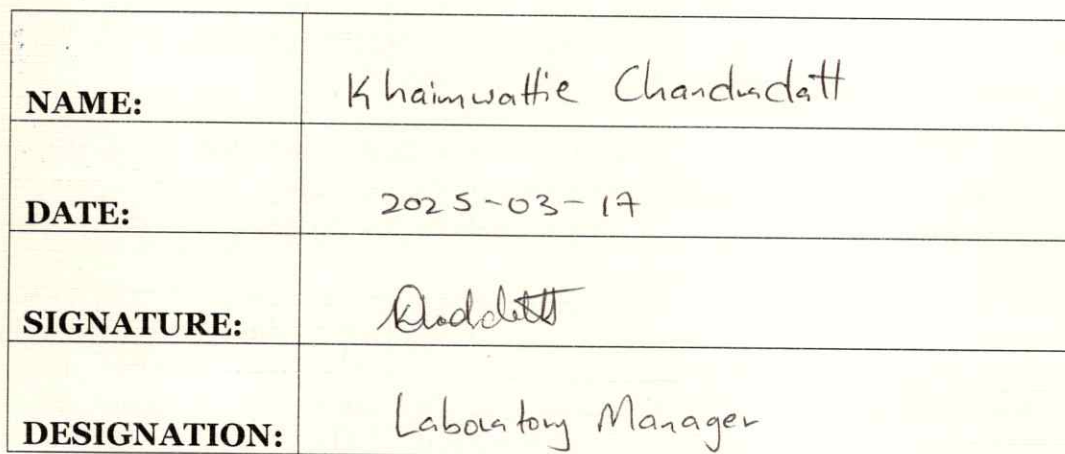 NAME: Khaimwattie Chandradatt
DATE: 2025-03-17
SIGNATURE:
DESIGNATION: Laboratory Manager